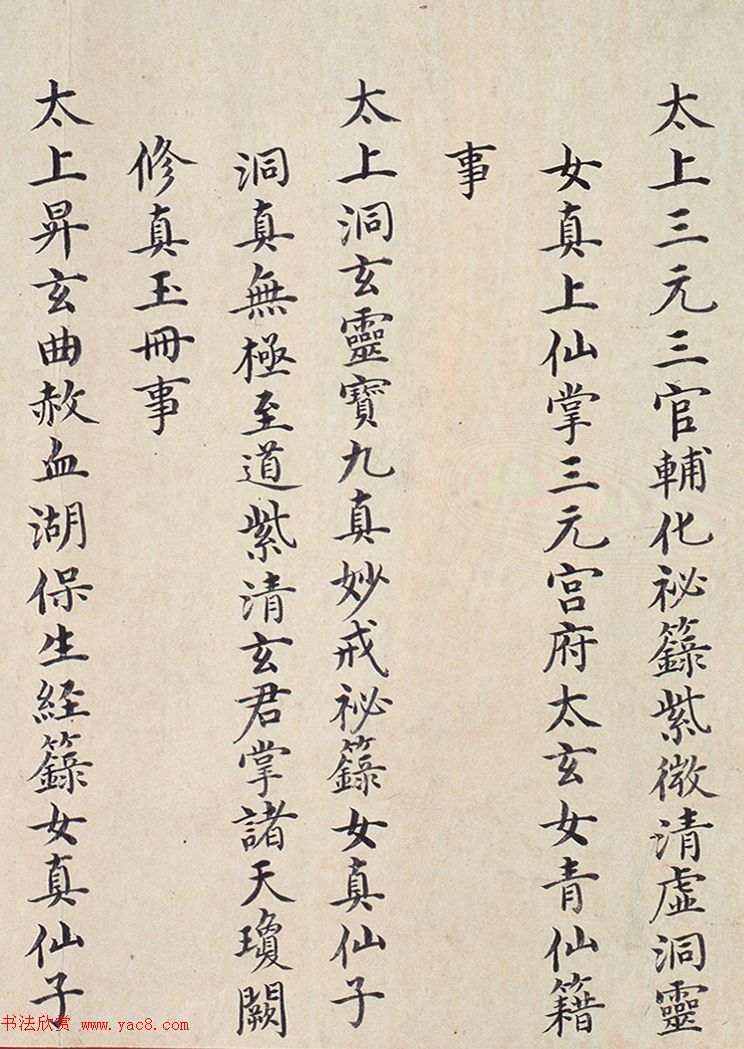 太上三元三官輔化祕籙紫微清虛洞靈
女真上仙掌三元宮府太玄女青仙籍
事
太上洞玄靈寶九真妙戒祕籙女真仙子
洞真無極至道紫清玄君掌諸天瓊闕
修真玉冊事
太上昇玄曲赦血湖保生経籙女真仙子
书法欣赏 www.yac8.com